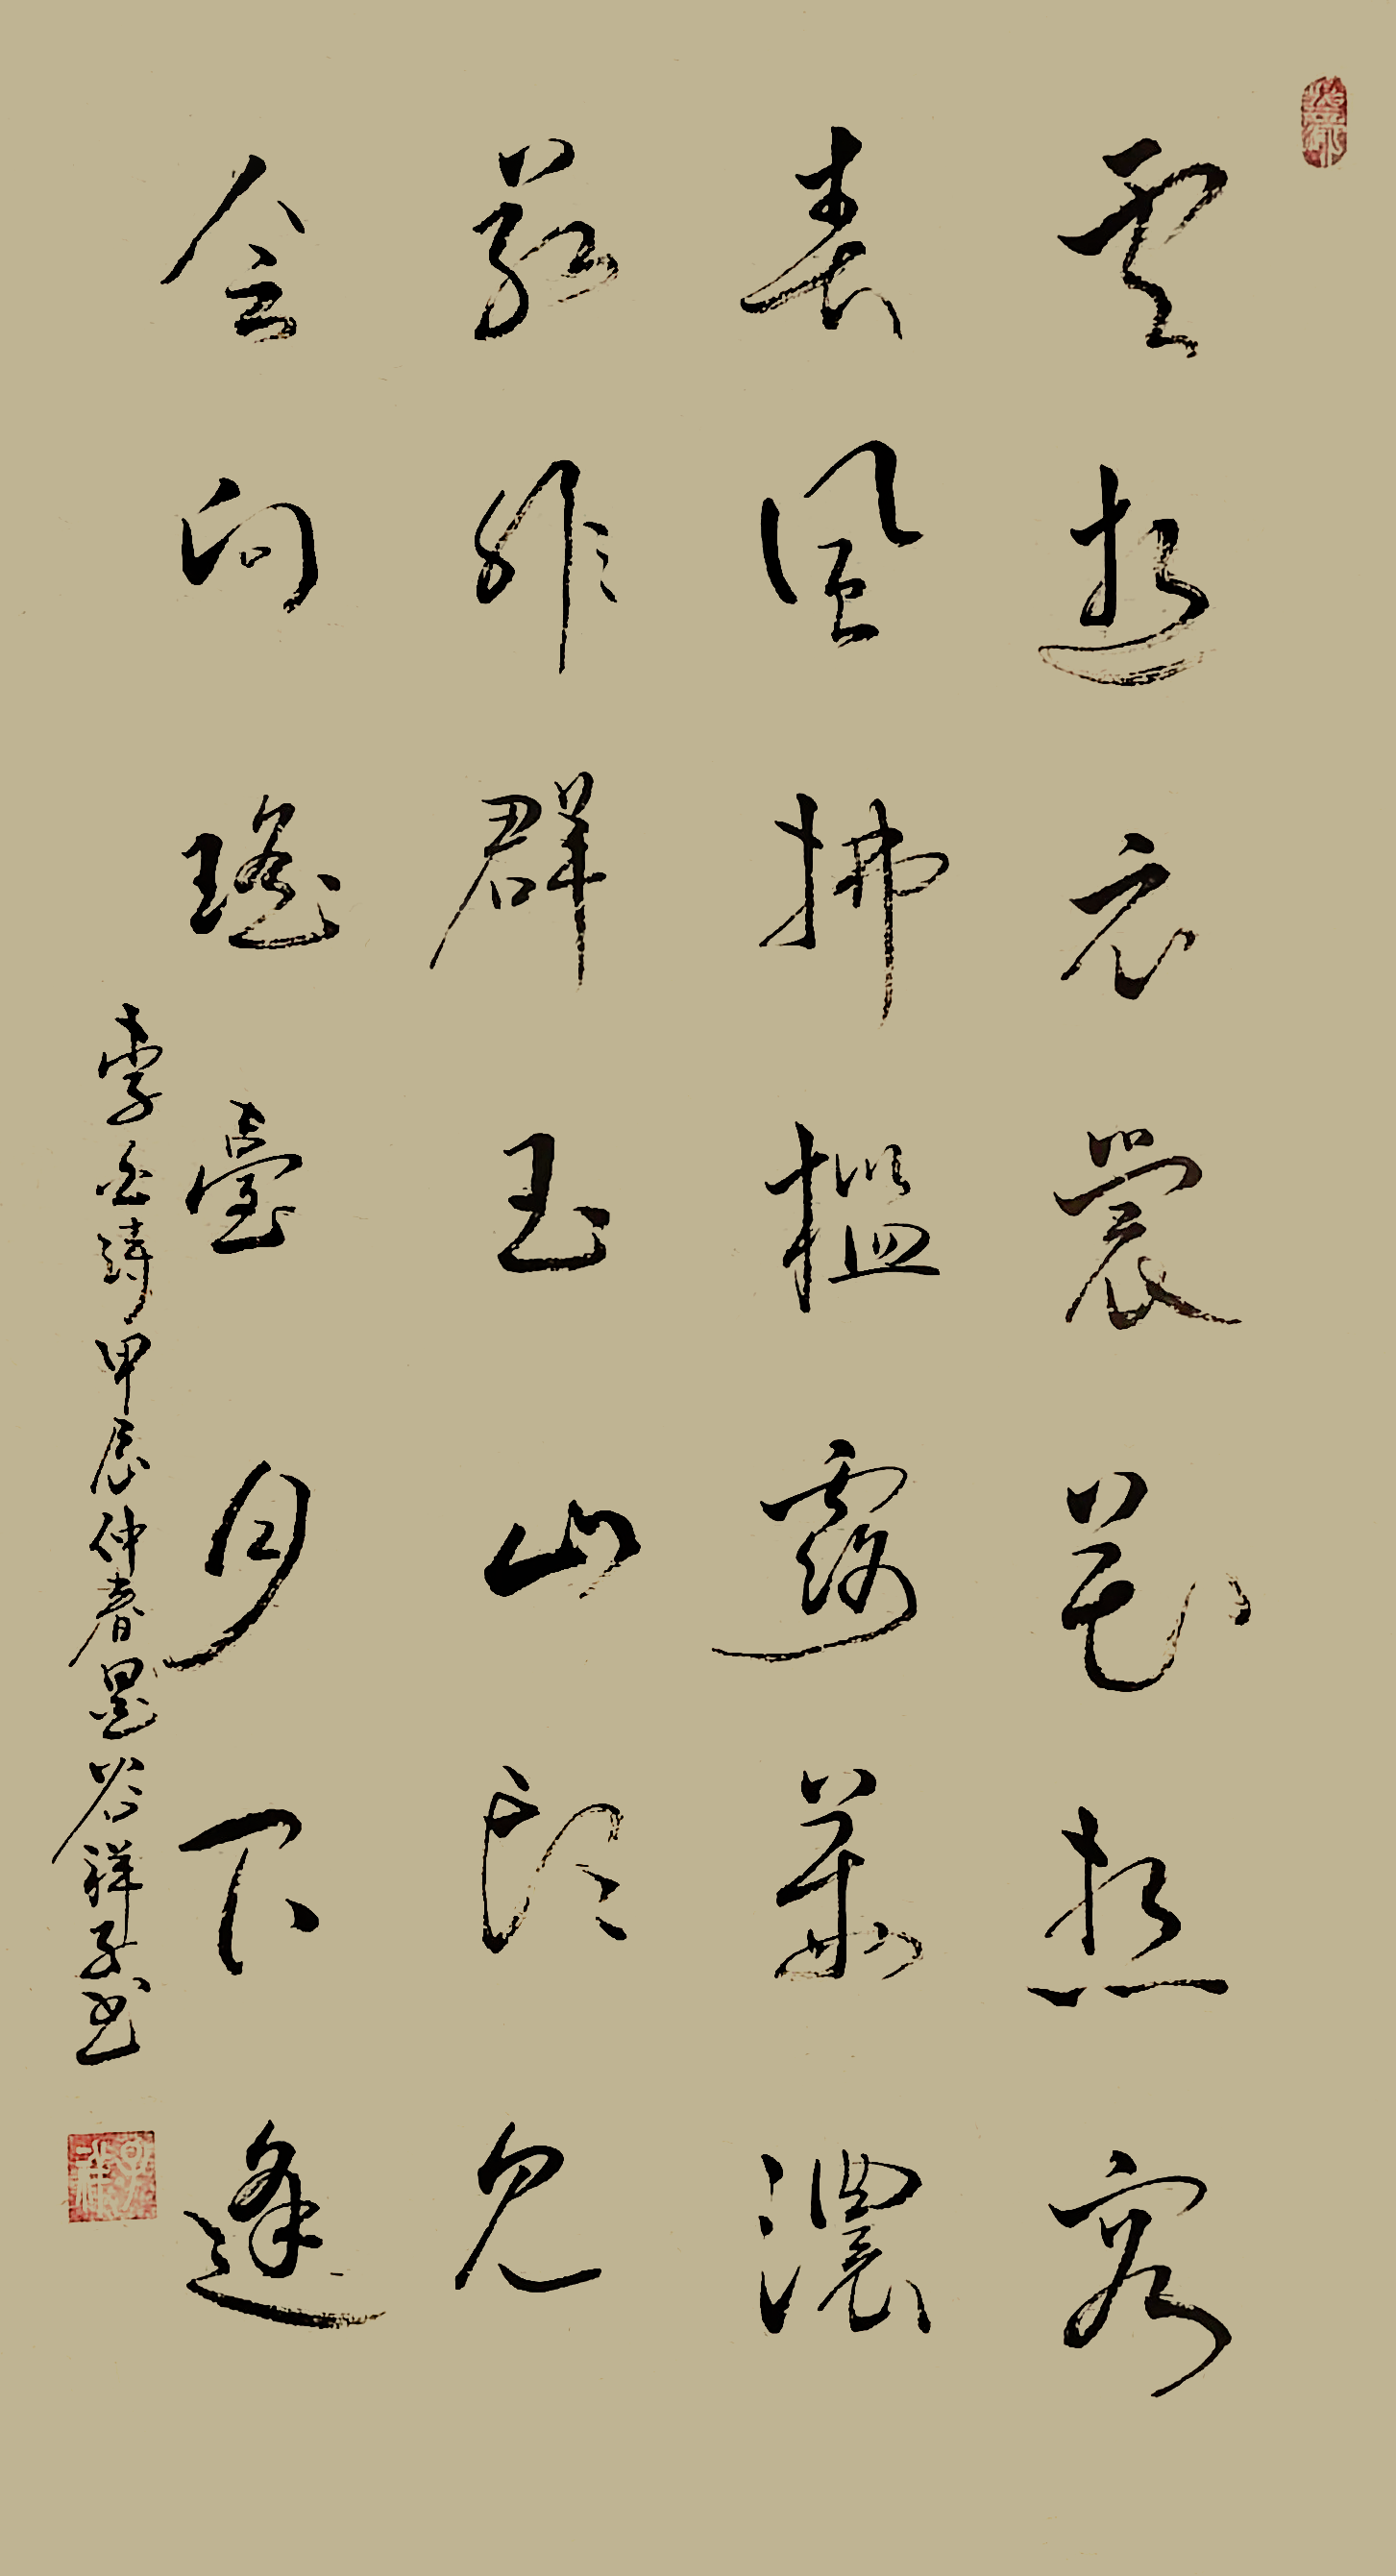 雲想衣裳花想容
春風拂檻露華濃
若非群玉山頭見
会向瑤臺月下逢
李白詩甲辰仲春墨谷祥子书